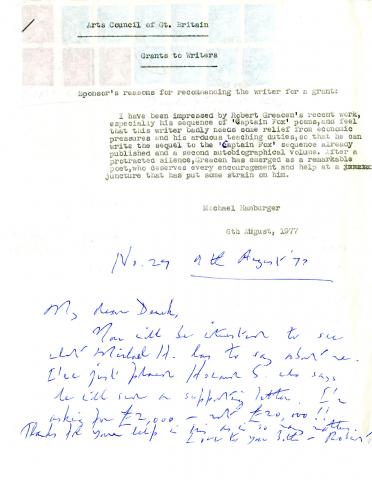 Arts Council of Gt. Britain
Grants to Writers
Sponsor's reasons for recommending the writer for a grant:
I have been impressed by Robert Greacen's recent work,
especially his sequence of 'Captain Fox' poems, and feel
that this writer badly needs some relief from economic
pressures and his arduous teaching duties, so that he can
write the sequel to the 'Captain Fox' sequence already
published and a second autobiographical volume. After a
protracted silence, Greacen has emerged as a remarkable
poet, who deserves every encouragement and help at a
juncture that has put some strain on him.
Michael Hamburger
6th August, 1977
No. 29 9th August '77
My dear Derek,
You will be interested to see
what Michael H. has to say about me.
I've just phoned Howard S. who says
he will send a supporting letter. I'm
asking for £2,000 — not £20,000!!
Thanks for your help in this as in so many matters.
Love to you both — Robert